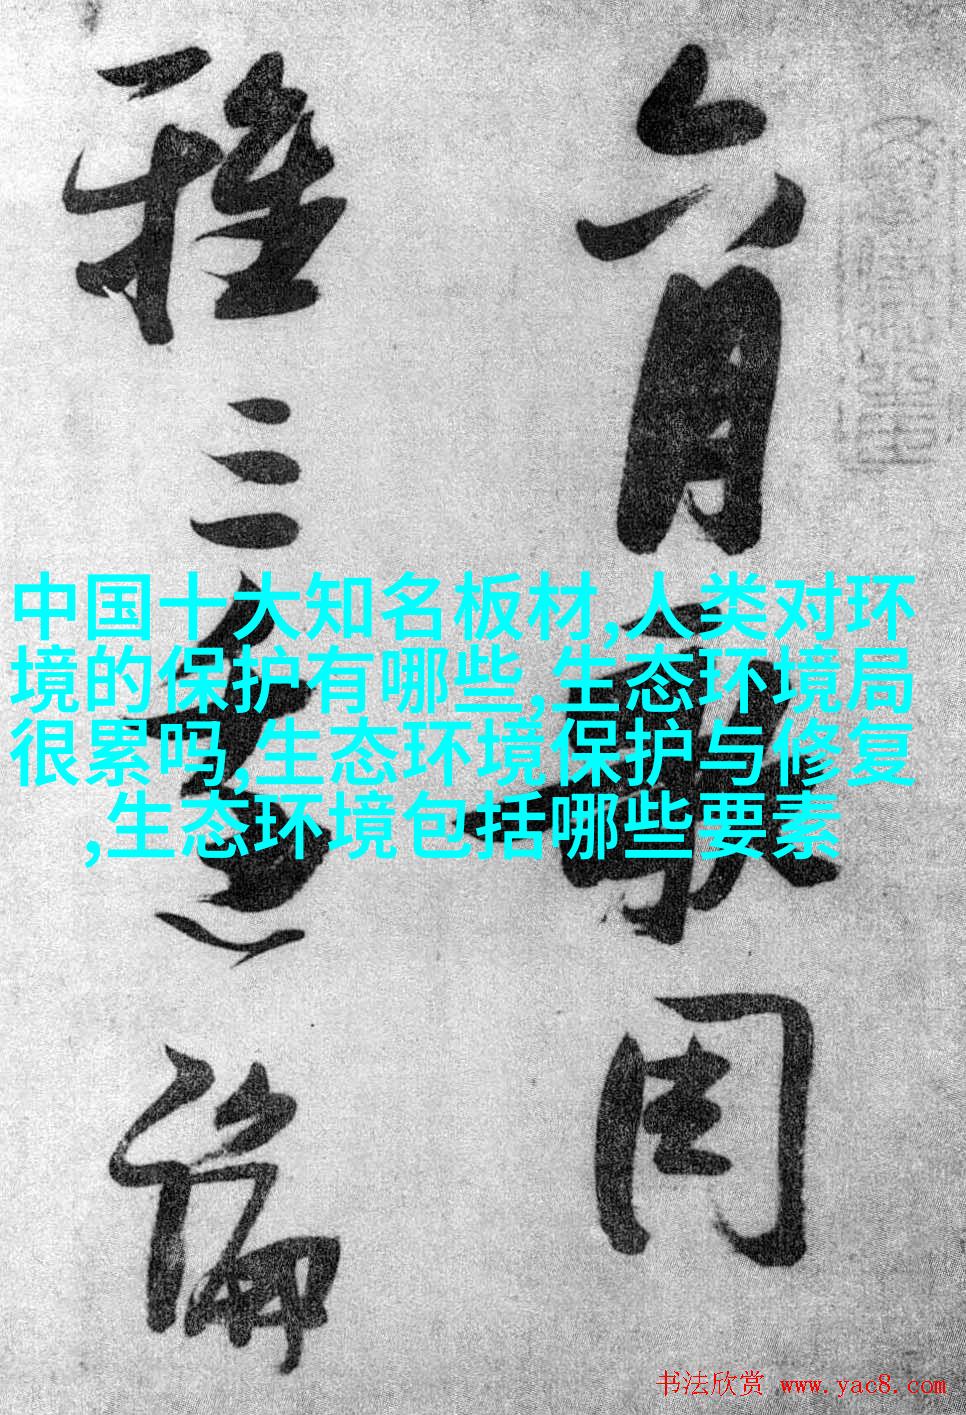 中国十大知名板材,人类对环
境的保护有哪些,生态环境局
很累吗,生态环境保护与修复
,生态环境包括哪些要素
六月
三
書法欣赏 www.yac8.com